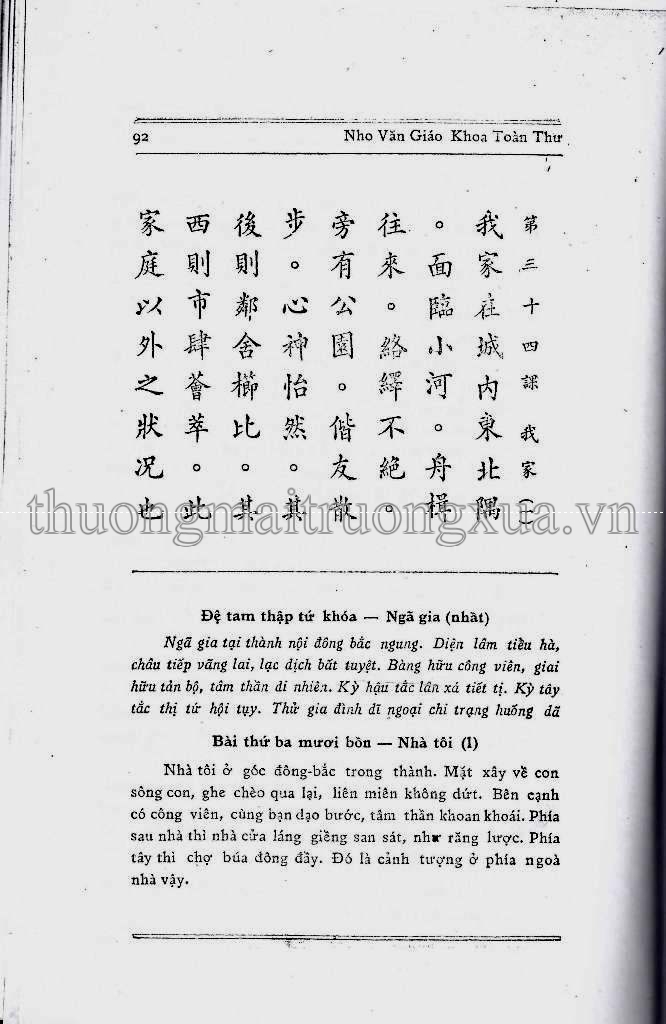 92 Nho Văn Giáo Khoa Toàn Thư
第三十四課 我家 (一)
我家在城内東北隅
。面臨小河。舟楫
往來。絡繹不絕。
旁有公園。偕友散
步。心神怡然。其
後則鄰舍櫛比。其
西則市肆薈萃。此
家庭以外之狀况也
thuongmaitruongxua.vn
Đệ tam thập tứ khóa — Ngã gia (nhất)
Ngã gia tại thành nội đông bắc ngung. Diện lâm tiểu hà,
châu tiếp vãng lai, lạc dịch bất tuyệt. Bàng hữu công viên, giai
hữu tản bộ, tâm thần di nhiên. Kỳ hậu tắc lân xá tiết tị. Kỳ tây
tắc thị tứ hội tụy. Thử gia đình dĩ ngoại chi trạng huống dã
Bài thứ ba mươi bốn — Nhà tôi (1)
Nhà tôi ở góc đông-bắc trong thành. Mặt xây về con
sông con, ghe chèo qua lại, liên miên không dứt. Bên cạnh
có công viên, cùng bạn dạo bước, tâm thần khoan khoái. Phía
sau nhà thì nhà cửa láng giềng san sát, như răng lược. Phía
tây thì chợ búa đông đầy. Đó là cảnh tượng ở phía ngoà
nhà vậy.